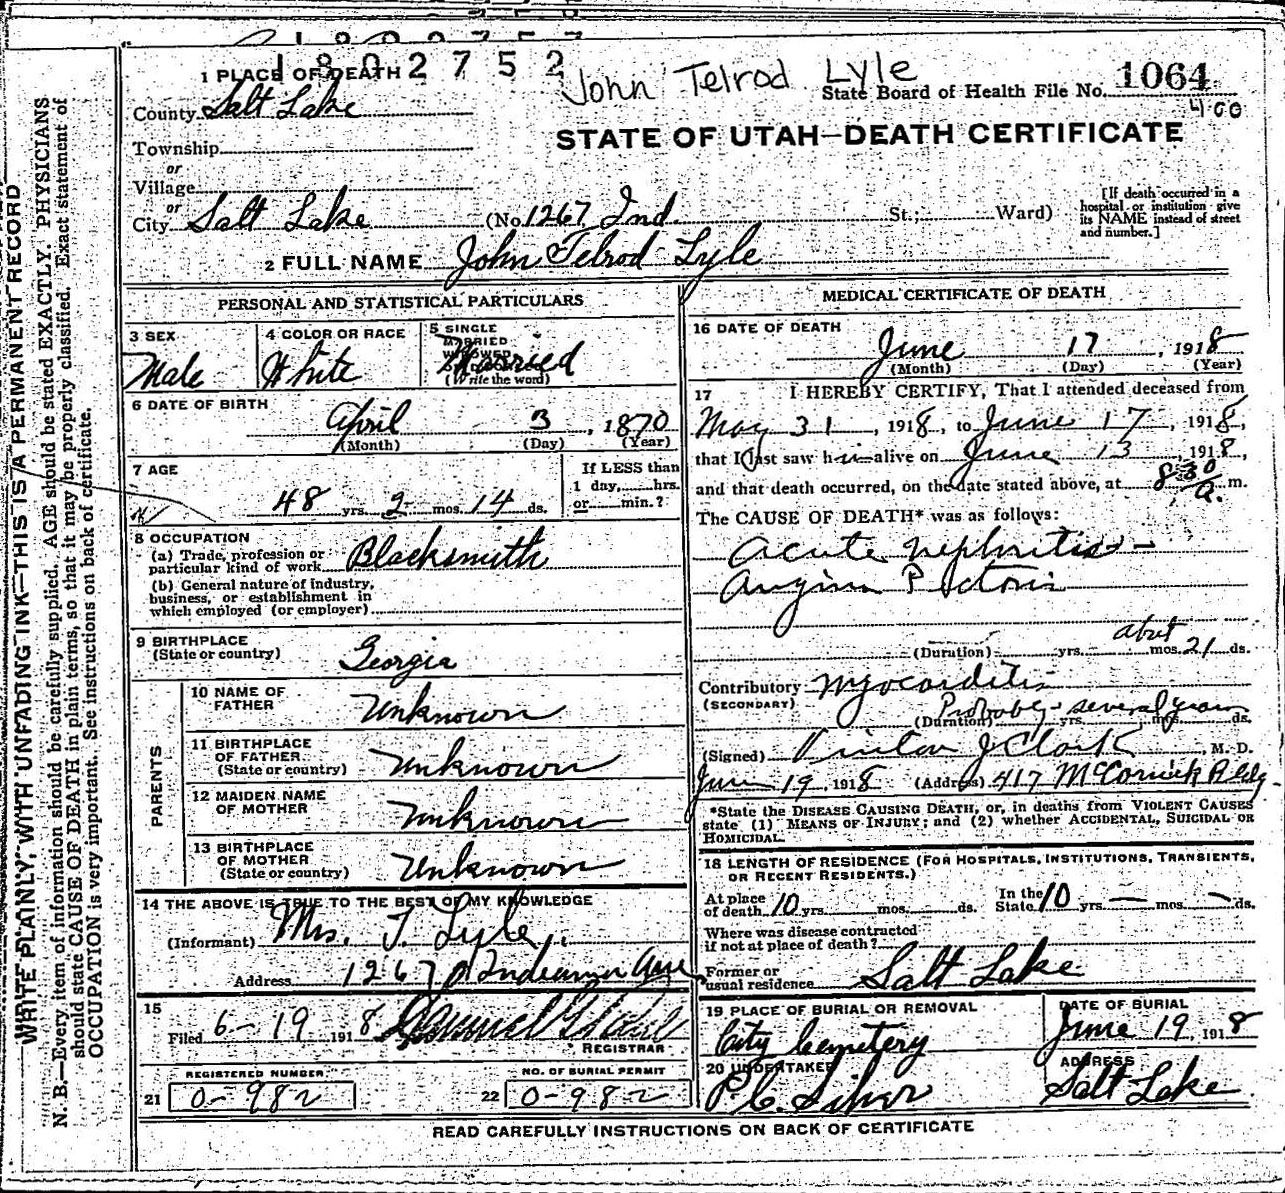 1802752
John Telrod Lyle
1 PLACE OF DEATH
State Board of Health File No. 1064
400
County Salt Lake
STATE OF UTAH—DEATH CERTIFICATE
Township
or
Village
or
City Salt Lake (No. 1267 Ind. St.; Ward)
[If death occurred in a hospital or institution give its NAME instead of street and number.]
2 FULL NAME John Telrod Lyle
PERSONAL AND STATISTICAL PARTICULARS
3 SEX
Male
4 COLOR OR RACE
White
5 SINGLE
MARRIED
WIDOWED
Married
(Write the word)
6 DATE OF BIRTH
April 3, 1870
(Month) (Day) (Year)
7 AGE
48 yrs. 2 mos. 14 ds.
If LESS than
1 day, hrs.
or min.?
8 OCCUPATION
(a) Trade, profession or
particular kind of work Blacksmith
(b) General nature of industry,
business, or establishment in
which employed (or employer)
9 BIRTHPLACE
(State or country) Georgia
PARENTS
10 NAME OF
FATHER Unknown
11 BIRTHPLACE
OF FATHER
(State or country) Unknown
12 MAIDEN NAME
OF MOTHER Unknown
13 BIRTHPLACE
OF MOTHER
(State or country) Unknown
14 THE ABOVE IS TRUE TO THE BEST OF MY KNOWLEDGE
(Informant) Mrs. J. Lyle,
Address 1267 Ave
15
Filed 6-19 1918
REGISTRAR
REGISTERED NUMBER
21 0-982
NO. OF BURIAL PERMIT
22 0-982
MEDICAL CERTIFICATE OF DEATH
16 DATE OF DEATH
June 17, 1918
(Month) (Day) (Year)
17 I HEREBY CERTIFY, That I attended deceased from
May 31, 1918, to June 17, 1918,
that I last saw him alive on June 13, 1918,
and that death occurred, on the date stated above, at 8 30 a. m.
The CAUSE OF DEATH* was as follows:
Acute Nephritis -
Angina Pectoris
about
(Duration) yrs. mos. 21 ds.
Contributory Myocarditis
(SECONDARY)
(Duration) Probably several years yrs. mos. ds.
(Signed) J Clark, M. D.
June 19, 1918 (Address) 417 McCornick Bldg.
*State the DISEASE CAUSING DEATH, or, in deaths from VIOLENT CAUSES
state (1) MEANS OF INJURY; and (2) whether ACCIDENTAL, SUICIDAL OR
HOMICIDAL.
18 LENGTH OF RESIDENCE (FOR HOSPITALS, INSTITUTIONS, TRANSIENTS,
OR RECENT RESIDENTS.)
At place
of death 10 yrs. mos. ds.
In the
State 10 yrs. — mos. — ds.
Where was disease contracted
if not at place of death?
Former or
usual residence Salt Lake
19 PLACE OF BURIAL OR REMOVAL
City Cemetery
DATE OF BURIAL
June 19, 1918
20 UNDERTAKER
ADDRESS
Salt Lake
READ CAREFULLY INSTRUCTIONS ON BACK OF CERTIFICATE
WRITE PLAINLY, WITH UNFADING INK—THIS IS A PERMANENT RECORD
N. B.—Every item of information should be carefully supplied. AGE should be stated EXACTLY. PHYSICIANS
should state CAUSE OF DEATH in plain terms, so that it may be properly classified. Exact statement of
OCCUPATION is very important. See instructions on back of certificate.